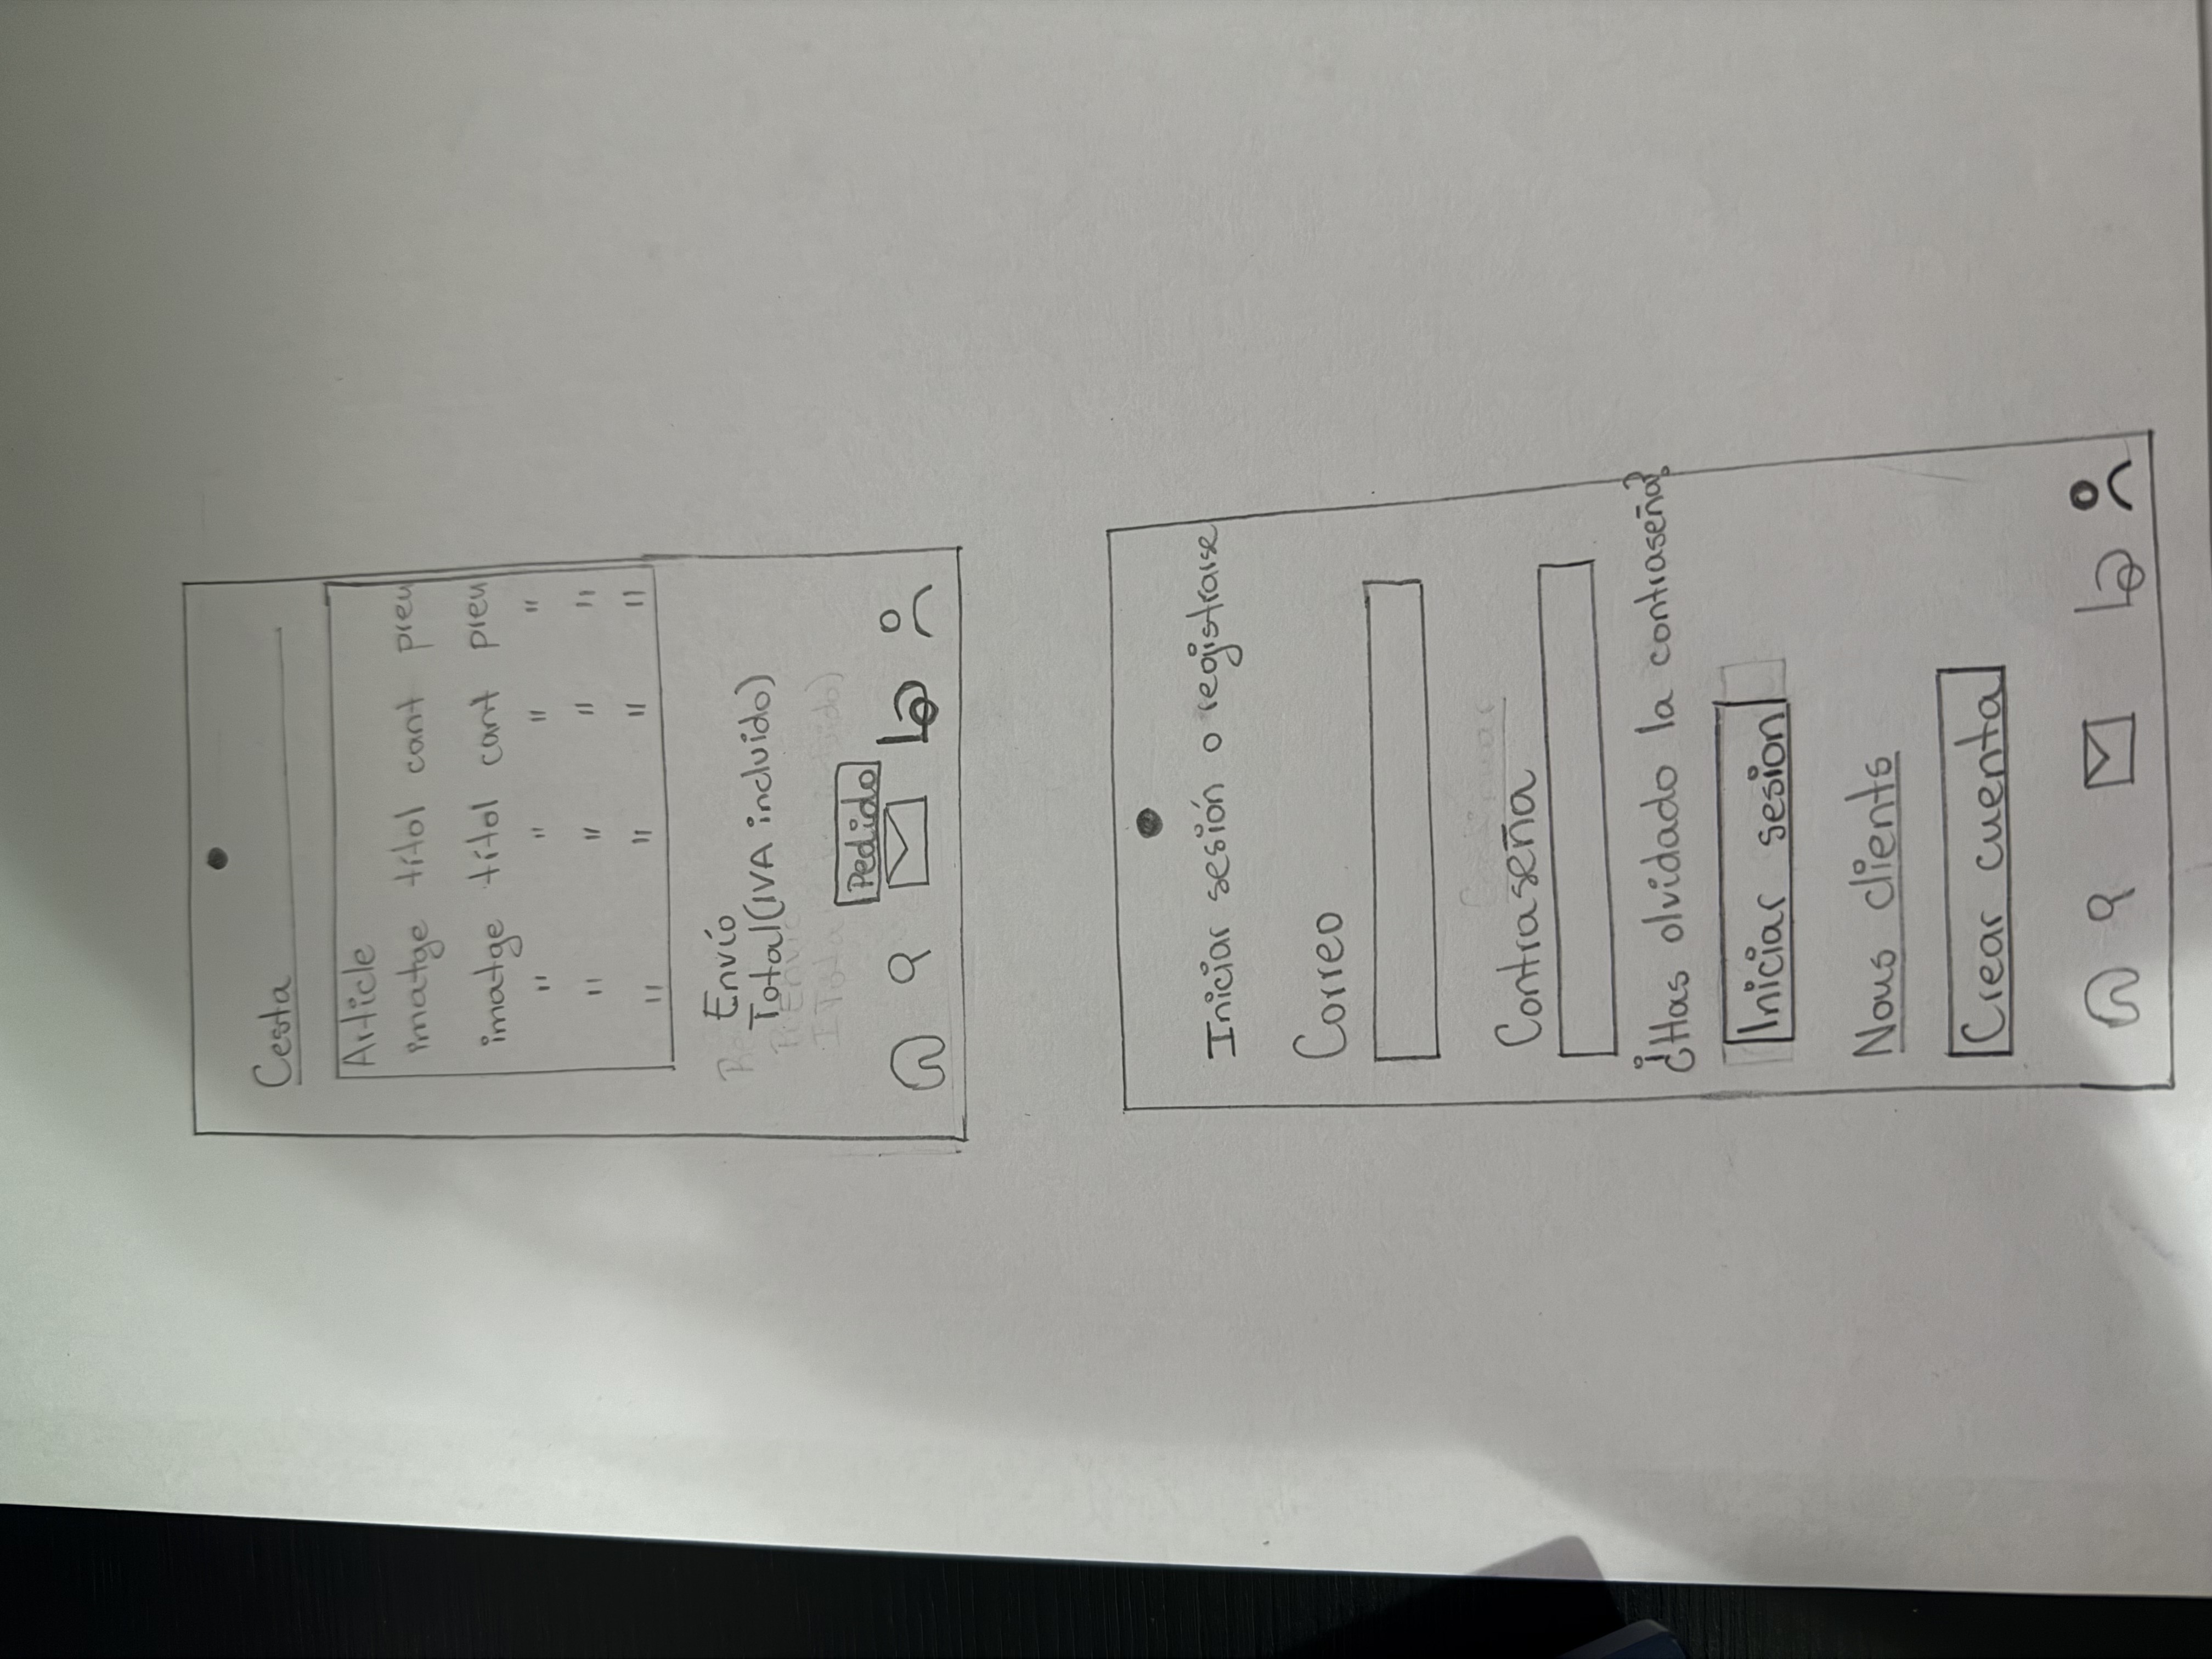 Cesta
Article
imatge títol cant preu
imatge títol cant preu
" " " "
" " " "
" " " "
Envío
Total(IVA incluido)
Pedido
Iniciar sesión o registrarse
Correo
Continuar
Contraseña
¿Has olvidado la contraseña?
Iniciar sesion
Nous clients
Crear cuenta